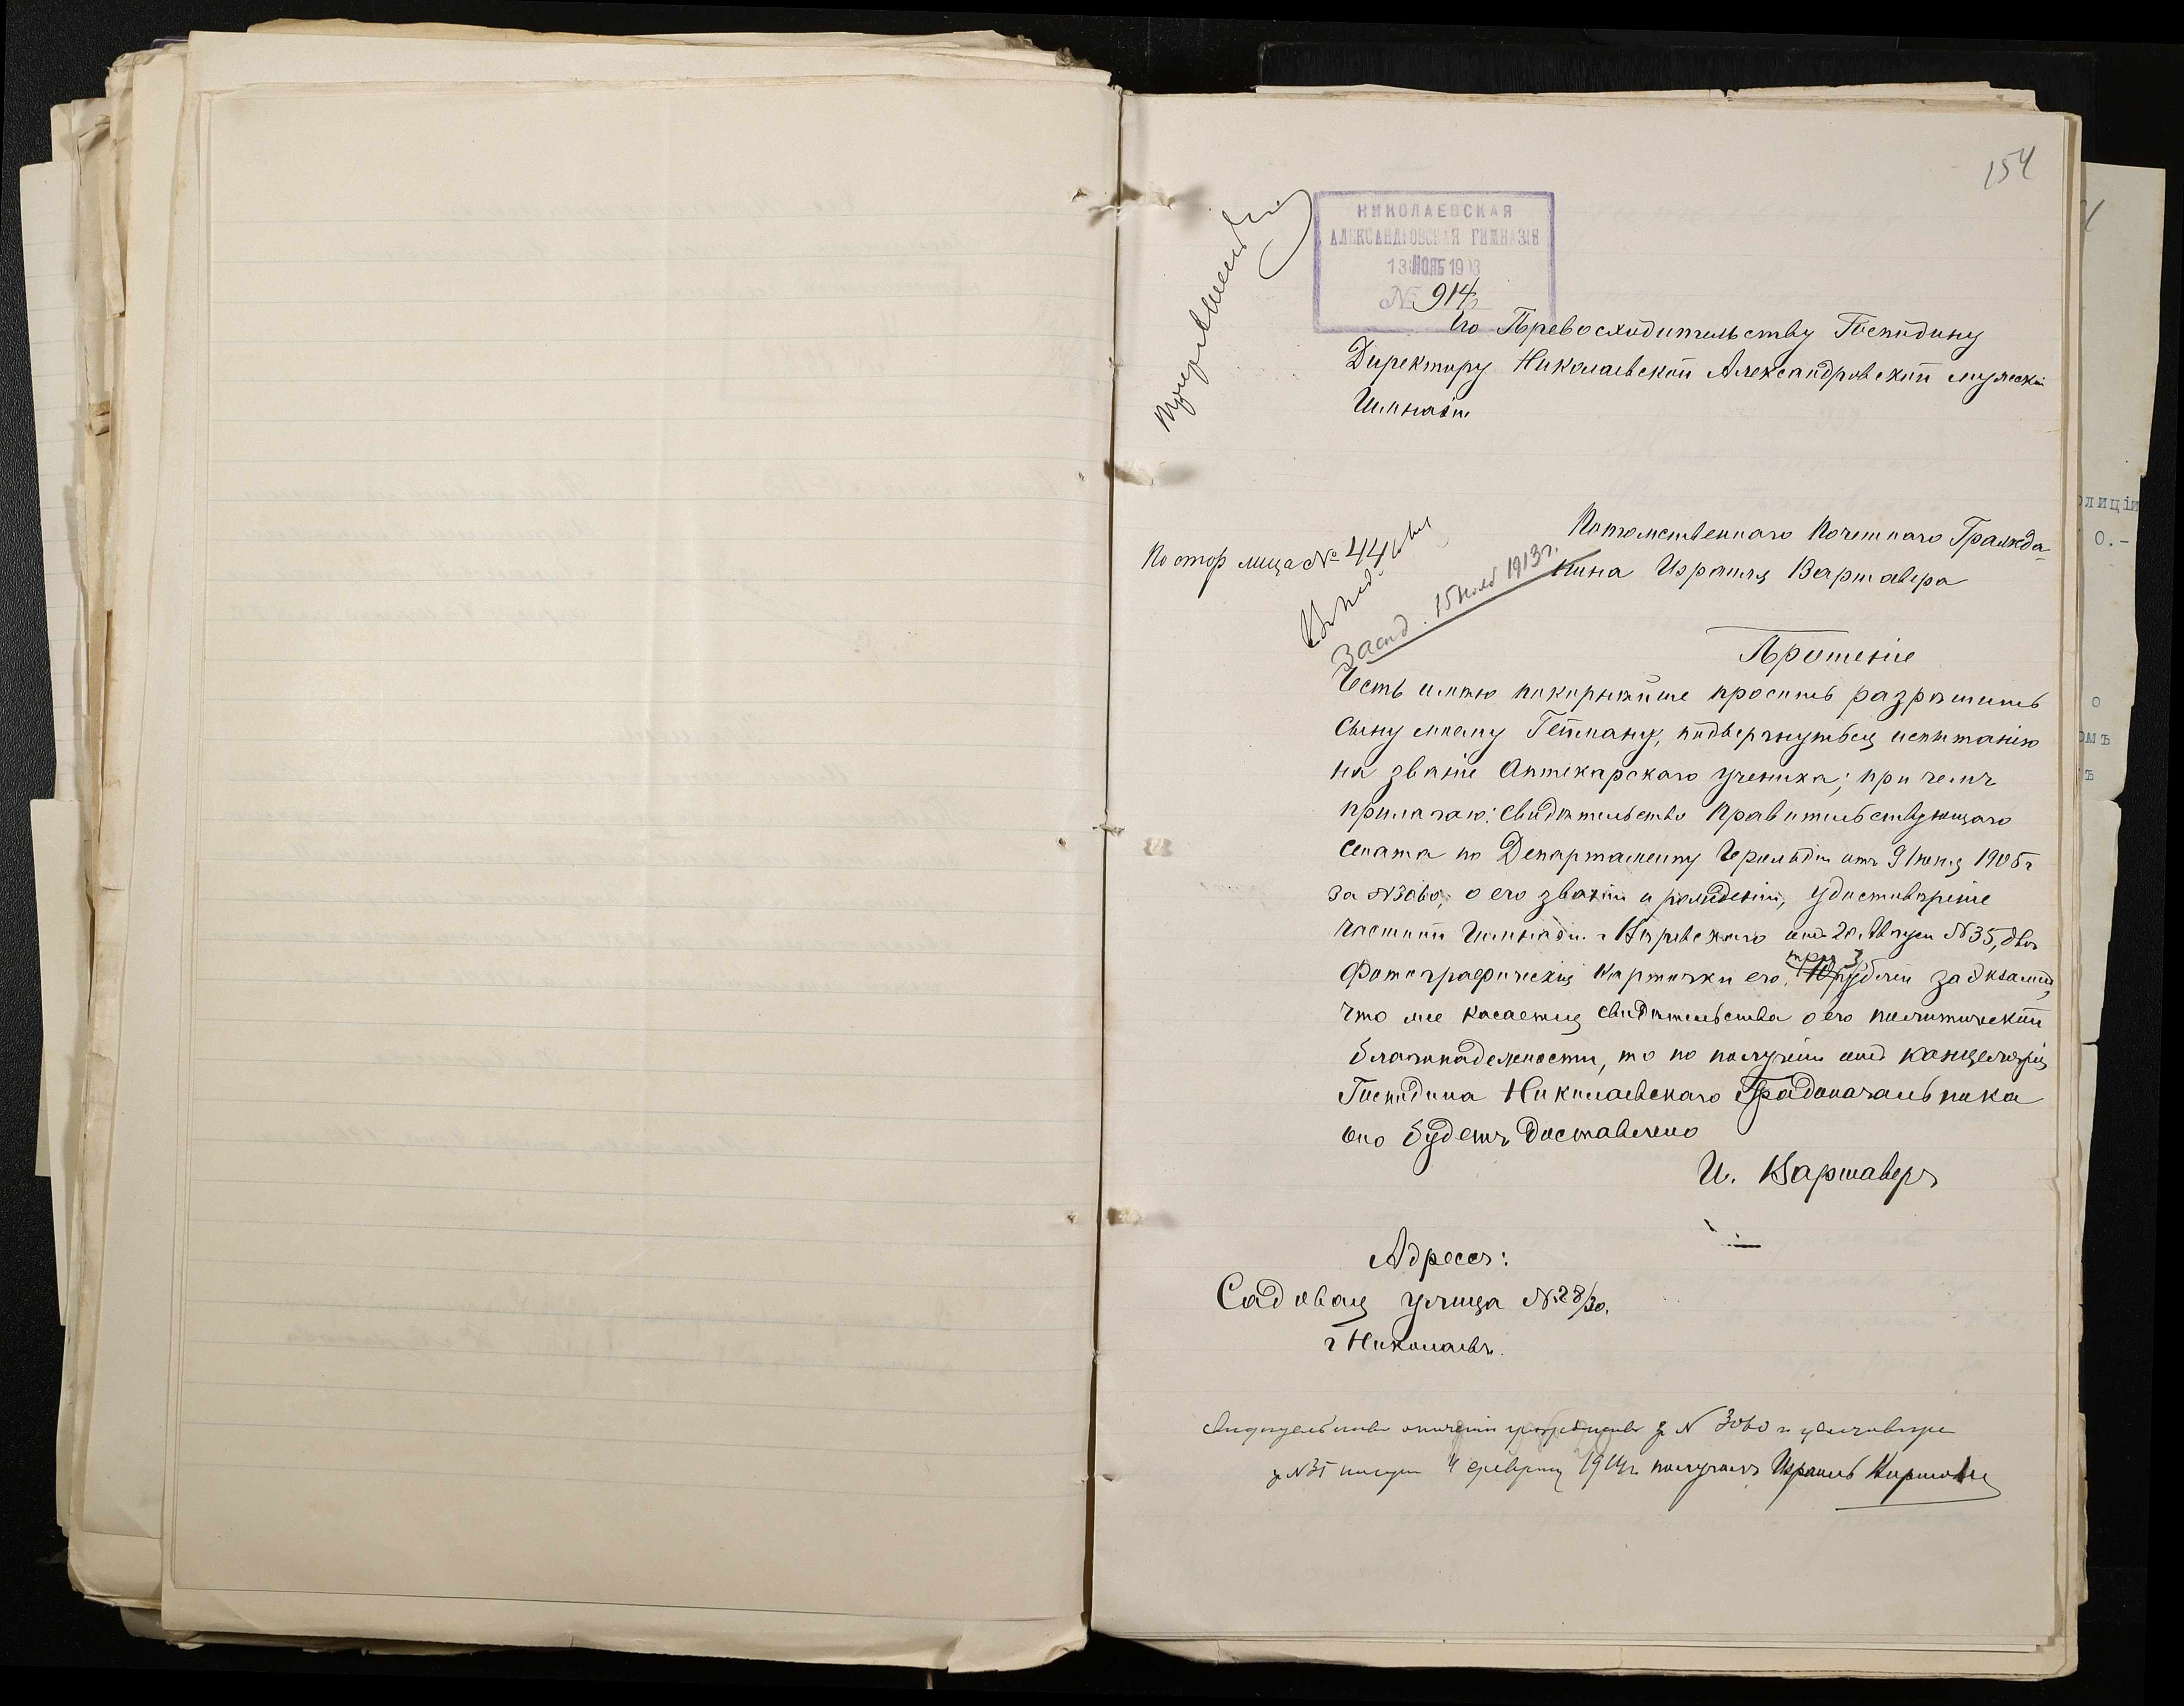 154
НИКОЛАЕВСКАЯ
АЛЕКСАНДРОВСКАЯ ГИМНАЗІЯ
13 НОЯБ 1913
№ 914
Его Превосходительству Господину
Директору Николаевской Александровской мужской
Гимназіи
Потомственнаго Почетнаго Гражда-
нина Израиля Варшавера
По стор лица № 44
Засѣд. 15 Нояб 1913 г.
Прошеніе
Честь имѣю покорнѣйше просить разрѣшить
сыну моему Гейману, подвергнуться испытанію
на званіе Аптекарскаго ученика; при чемъ
прилагаю: свидѣтельство Правительствующаго
Сената по Департаменту Герольдіи отъ 9 Іюня 1905 г
за №3060, о его званіи и рожденіи, удостовѣреніе
частной Гимназіи г. отъ 20 Августа №35, двѣ
фотографическія карточки его, три 3 рублей за экзамен,
что же касается свидѣтельства о его политической
благонадежности, то по полученіи отъ канцеляріи
Господина Николаевскаго Градоначальника
оно будетъ доставлено
И. Варшаверъ
Адресъ:
Садовая улица №28/30.
г Николаевъ.
№ 3060 и удостовѣре
№35 4 февраля 1914 г. получилъ Израиль Варшавер
олиціи
О.-
о
омъ
ѣ